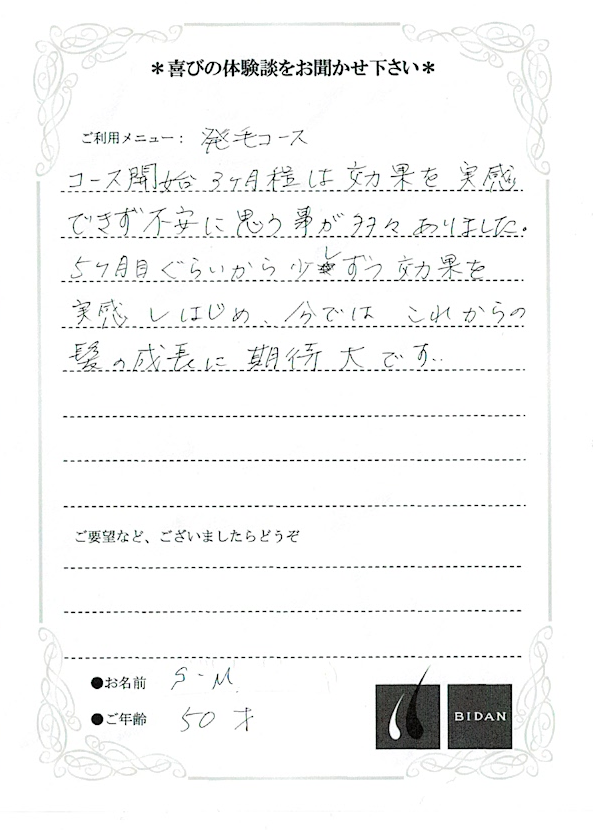 ＊喜びの体験談をお聞かせ下さい＊
ご利用メニュー： 発毛コース
コース開始 3ヶ月程は 効果を 実感
できず不安に思う事が多々ありました。
5ヶ月目ぐらいから 少しずつ 効果を
実感 しはじめ、今では これからの
髪の成長に 期待 大 です。
ご要望など、ございましたらどうぞ
●お名前 S・M
●ご年齢 50才
BIDAN